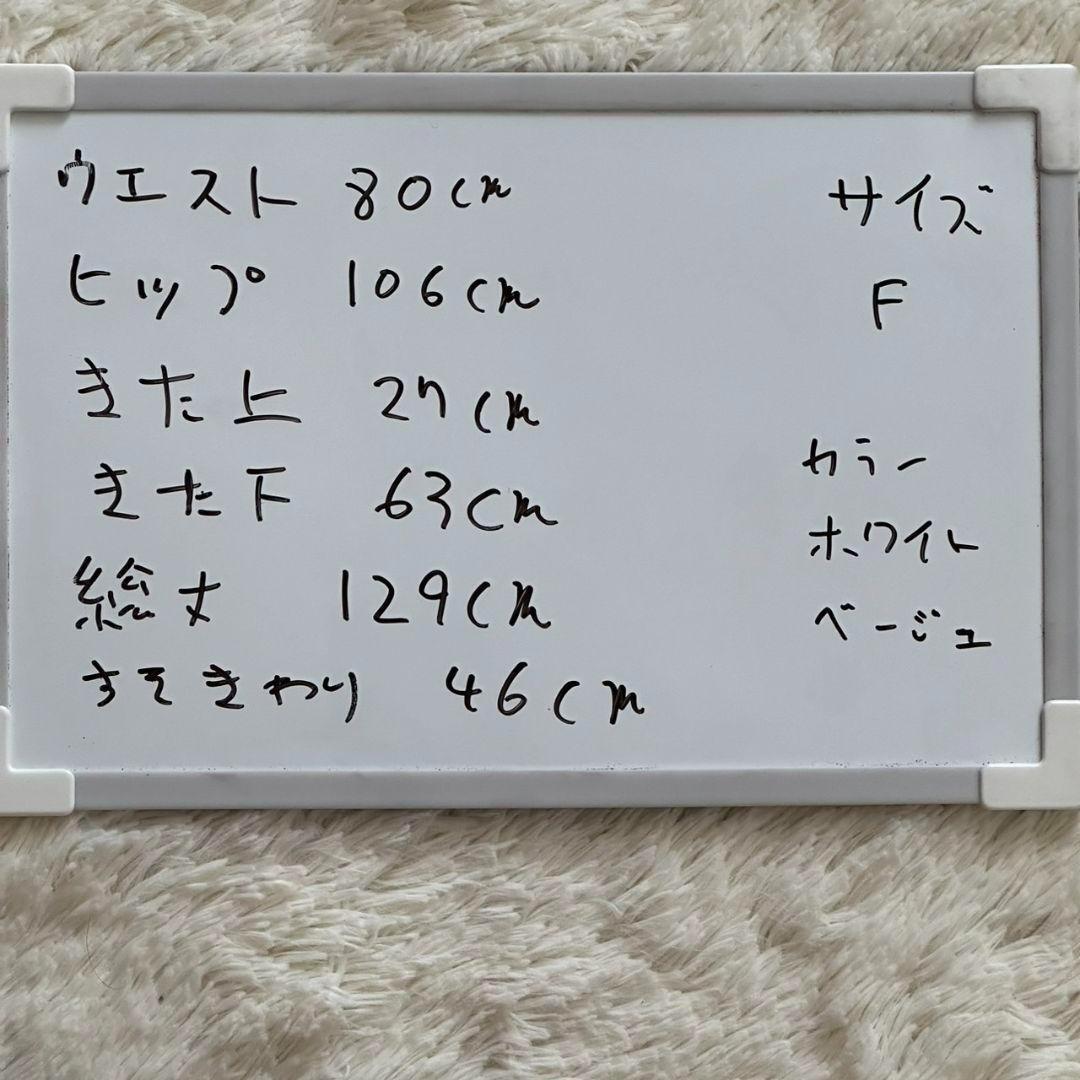 ウエスト 80cm
ヒップ 106cm
きた上 27cm
きた下 63cm
総丈 129cm
すそきわり 46cm
サイズ
F
カラー
ホワイト
ベージュ